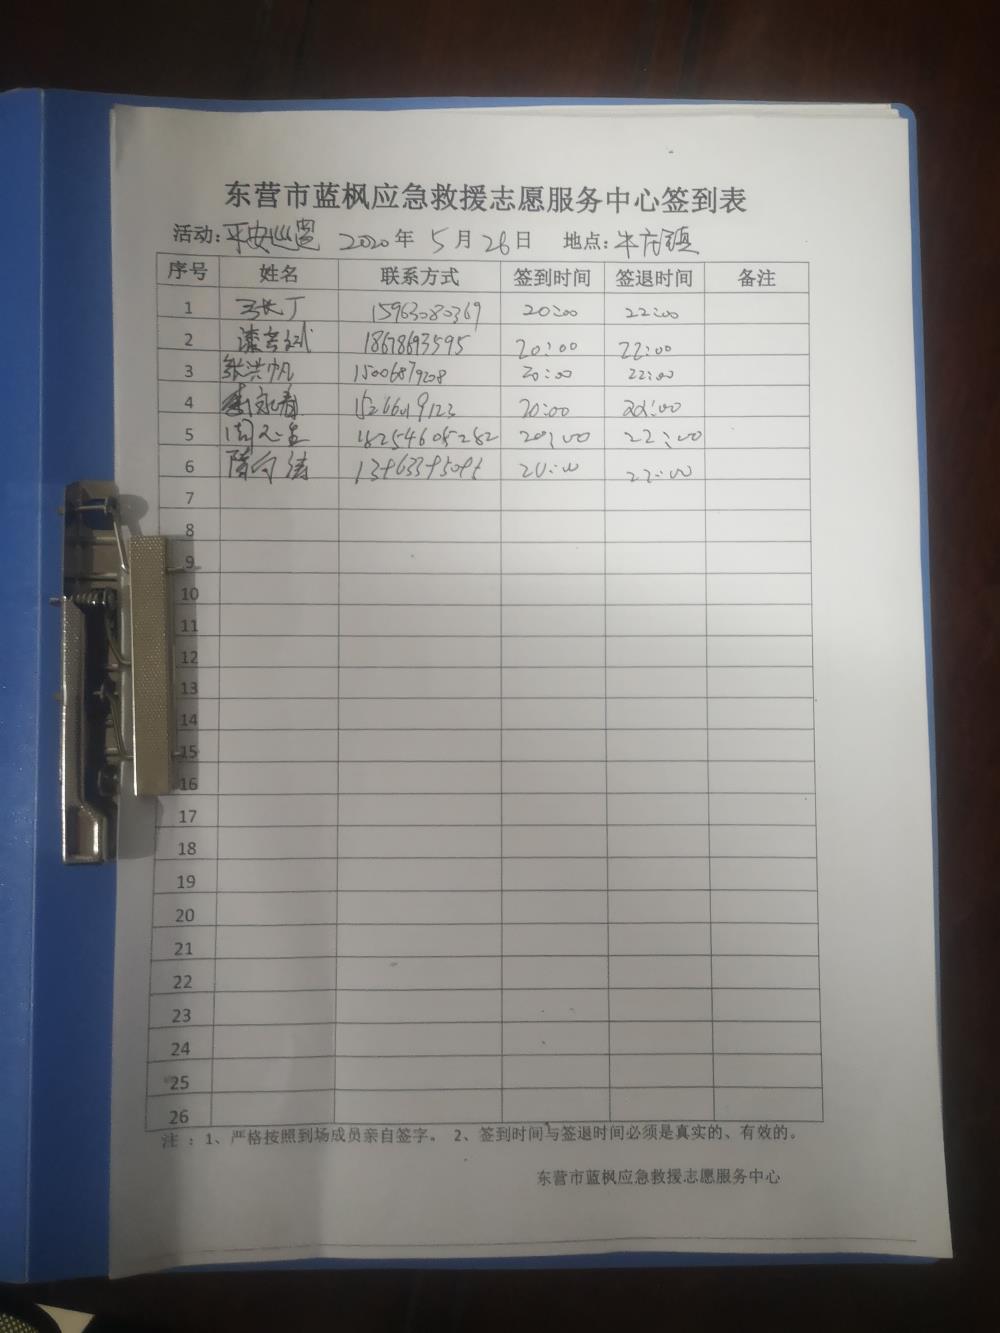 东营市蓝枫应急救援志愿服务中心签到表
活动:平安巡逻 2020年 5月26日 地点:牛庄镇
序号 姓名 联系方式 签到时间 签退时间 备注
1 15963080369 20:00 22:00
2 18678693595 20:00 22:00
3 张洪帆 15006879208 20:00 22:00
4 李永春 20:00 22:00
5 周志圣 18254605282 20:00 22:00
6 20:00 22:00
7
8
9
10
11
12
13
14
15
16
17
18
19
20
21
22
23
24
25
26
注：1、严格按照到场成员亲自签字。 2、签到时间与签退时间必须是真实的、有效的。
东营市蓝枫应急救援志愿服务中心